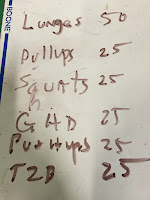 BOONE
Lungas 50
Pullups 25
Squats 25
GHD 25
Pushups 25
T2B 25